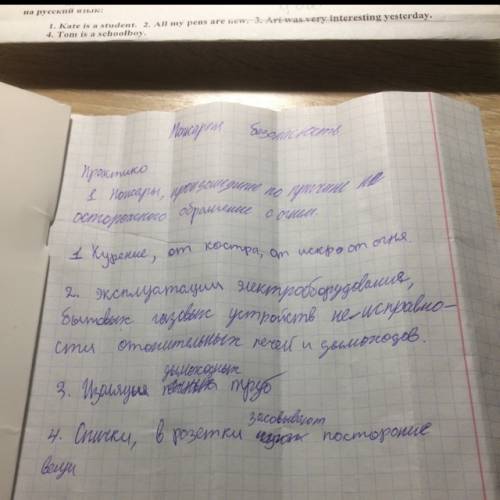 на русский язык:
1. Kate is a student. 2. All my pens are new. 3. Art was very interesting yesterday.
4. Tom is a schoolboy.
Пожарная безопасность
Практико
1. Пожары, произошедшие по причине не
осторожного обращение с огнем.
1. Курение, от костра, от искр от огня.
2. эксплуатации электрооборудования,
бытовых газовых устройств неисправно-
сти отопительных печей и дымоходов.
дымоходных
3. Изоляция труб
засовывают
4. Спички, в розетки посторонние
вещи